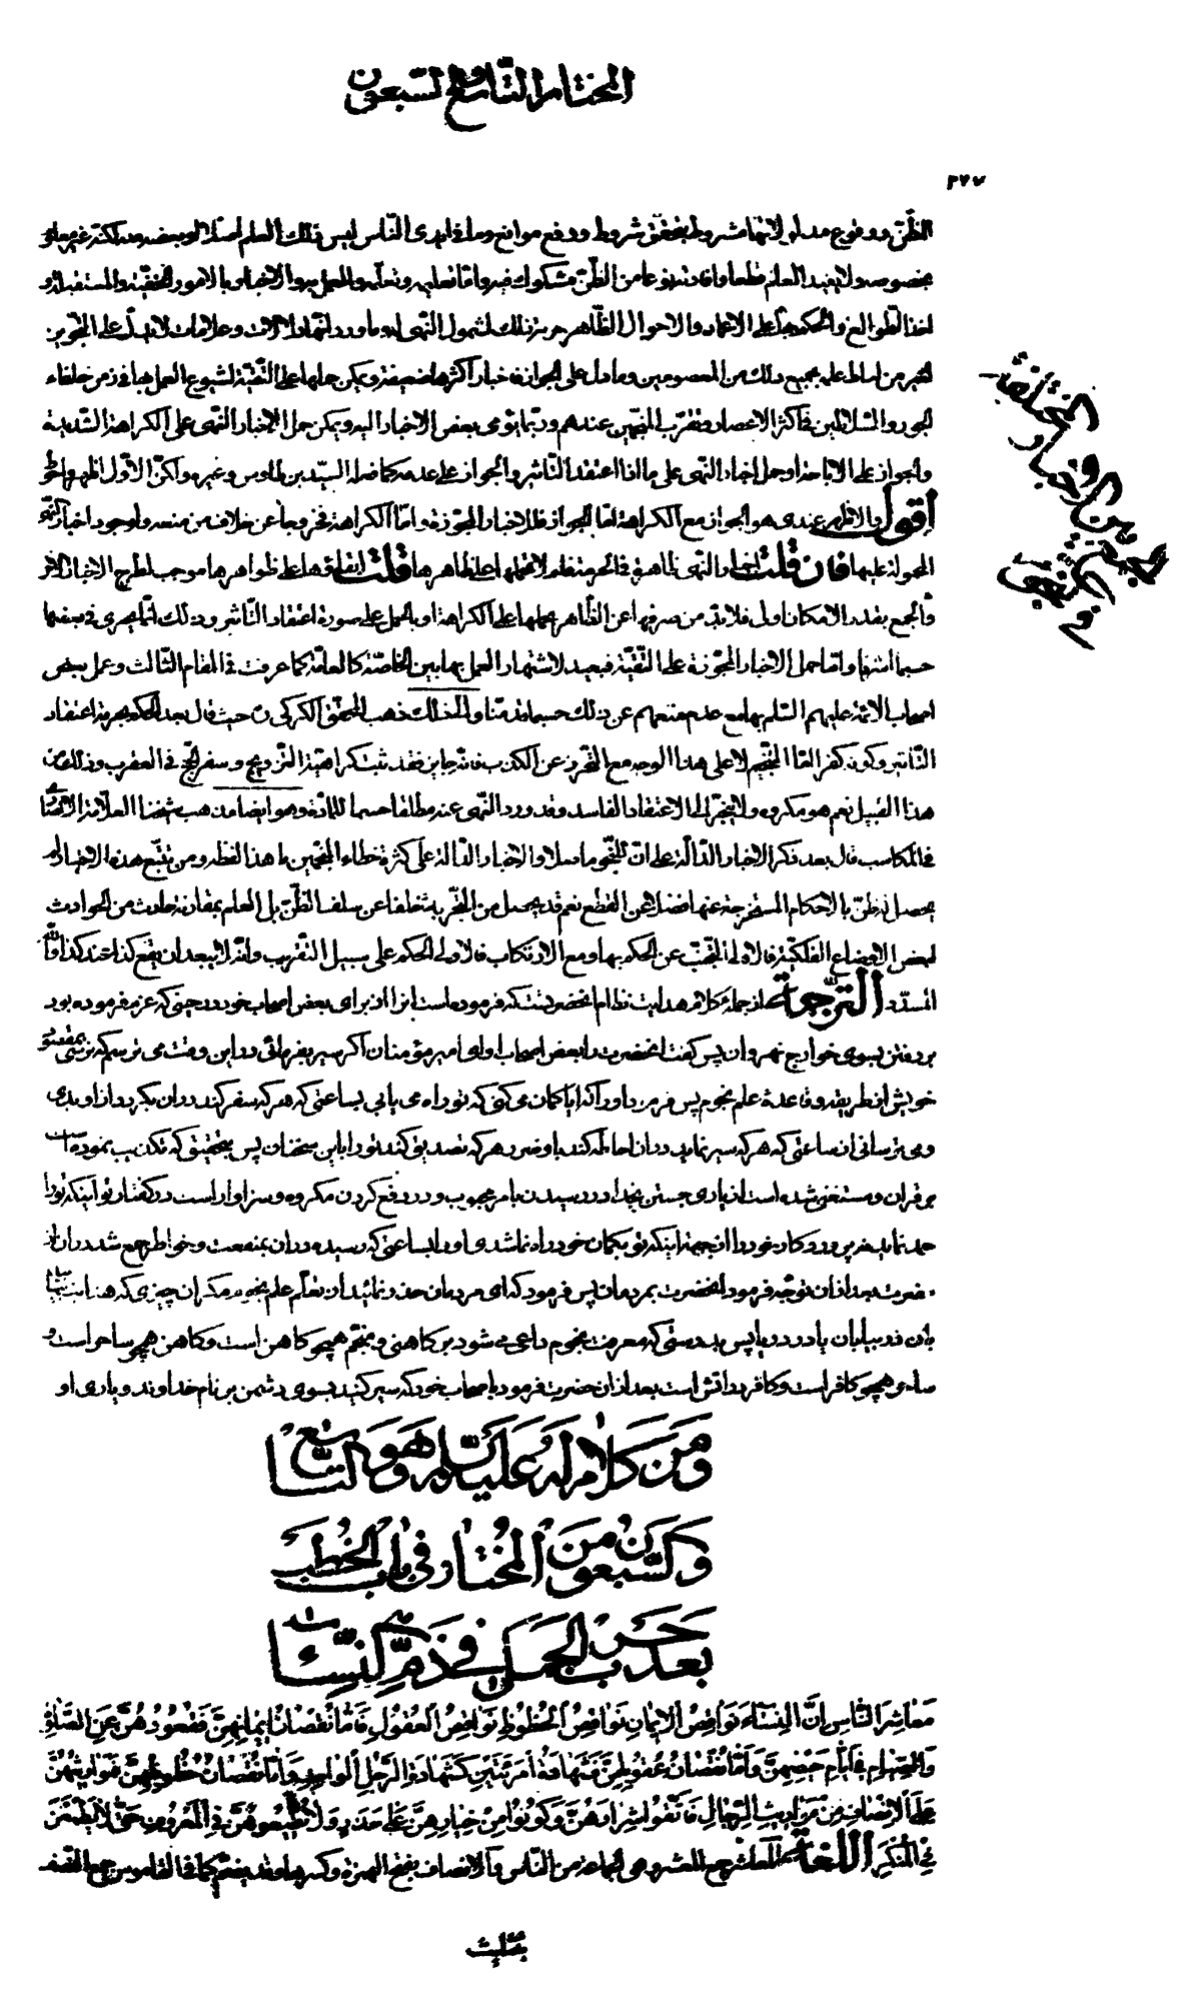 المختار التاسع والسبعون
٢٧٧
الظن ووقوع مدلولاتها مشروط بتحقق شروط ورفع موانع وما في ايدى الناس ليس ذلك العلم اصلا او بعضه منه لكنه غير معلوم
بخصوصه ولا يفيد العلم قطعا وافادته نوعا من الظن مشكوك فيه واما تعليمه وتعلمه والعمل به والاخبار بالامور الخفية والمستقبلة و
اخذ الطوالع والحكم بها على الاعمار والاحوال الظاهر حرمة ذلك لشمول النهى له وما ورد انها دلالات وعلامات لا يدل على التجويز
لغير من احاط علمه بجميع ذلك من المعصومين وما دل على الجواز فاخبار اكثرها ضعيفة ويمكن حملها على التقية لشيوع العمل بها في زمن خلفاء
الجور والسلاطين في اكثر الاعصار وتقرب المنجمين عندهم وربما يومى بعض الاخبار اليه ويمكن حمل اخبار النهى على الكراهة الشديدة
والجواز على الاباحة او حمل اخبار النهى على ما اذا اعتقد التأثير والجواز على عدمه كما فعله السيد بن طاوس وغيره ولكن الاول اظهر واحوط
اقول والاظهر عندى هو الجواز مع الكراهة اما الجواز فللاخبار المجوزة واما الكراهة فخروجا عن خلاف من منعه ولوجود اخبار النهى
المحمولة عليها فان قلت اخبار النهى ظاهرة في الحرمة فلم لا تحملها على ظاهرها قلت ابقاؤها على ظواهرها موجب لطرح الاخبار الاخر
والجمع بقدر الامكان اولى فلا بد من صرفها عن الظاهر بحملها على الكراهة او بالحمل على صورة اعتقاد التأثير وذلك انما يجرى في بعضها
حسبما اشرنا واما حمل الاخبار المجوزة على التقية فبعيد لاشتهار العمل بها بين الخاصة كالعامة كما عرفت في المقام الثالث وعمل بعض
اصحاب الائمة عليهم السلام بها مع عدم منعهم عن ذلك حسبما قدمنا والى ذلك ذهب المحقق الكركى ن حيث قال بعد الحكم بحرمة اعتقاد
التأثير وكونه كفرا اما التنجيم لا على هذا الوجه مع التحرز عن الكذب فانه جايز فقد ثبت كراهية التزويج وسفر الحج في العقرب وذلك من
هذا القبيل نعم هو مكروه ولا ينجر الى الاعتقاد الفاسد وقد ورد النهى عنه مطلقا حسما للمادة وهو ايضا مذهب شيخنا العلامة الانصارى
في المكاسب قال بعد ذكر الاخبار الدالة على ان للنجوم اصلا والاخبار الدالة على كثرة خطاء المنجمين ما هذا لفظه ومن تتبع هذه الاخبار لم
يحصل له ظن بالاحكام المستخرجة عنها فضلا عن القطع نعم قد يحصل من التجربة متلقاة عن سلف الظن بل العلم بمقارنة حادث من الحوادث
لبعض الاوضاع الفلكية فالاولى التجنب عن الحكم بها ومع الارتكاب فالاولى الحكم على سبيل التقريب وانه لا يبعد ان يقع كذا عند كذا والله
المسدد الترجمة از جمله كلام هدايت نظام انحضرتست كه فرموده است انرا از براى بعض اصحاب خود در حينى كه عزم فرموده بود
بر رفتن بسوى خوارج نهروان پس گفت انحضرت را بعض اصحاب او اى امير مؤمنان اگر سير بفرمائى در اين وقت مى ترسم كه نرسى بمقصود
خويش از طريق و قاعدة علم نجوم پس فرمود او را كه ايا گمان مى كنى كه تو راه مى يابى بساعتى كه هر كه سفر كند در ان بگردد از او بدى
و مى ترسانى از ساعتى كه هر كه سير نمايد در ان احاطه كند باو ضرر هر كه تصديق كند تو را باين سخنان پس بتحقيق كه تكذيب نموده است
بر قران و مستغنى شده است از يارى جستن بخدا در رسيدن بامر محبوب و در دفع كردن مكروه و سزاوار است در گفتار تو اينكه تو را
حمد نمايد نه پروردگار خود را از جهة اينكه تو بگمان خود راه نماشدى او را بساعتى كه رسيده در ان بمنفعت و خواطر جمع شد در ان از
مضرت بعد از ان توجه فرمود انحضرت بمردمان پس فرمود كه اى مردمان حذر نمائيد از تعلم علم نجوم مگر ان چيزى كه هدايت يابيد
بان در بيابان يا در دريا پس بدرستى كه معرفت نجوم داعى مى شود بر كاهنى و منجم همچو كاهن است و كاهن همچو ساحر است و
ساحر همچو كافر است و كافر در اتش است بعد از ان حضرت فرمود باصحاب خود كه سير كنيد بسوى دشمن بر نام خداوند و يارى او
وَمِنْ كَلامٍ لَهُ عَلَيْهِ السَّلام وَهُوَ التّاسِع
وَالسَّبعون مِنَ الْمُختار في باب الخُطَب
بَعْدَ حَرْبِ الْجَمَلِ في ذَمِّ النِّسآءِ
مَعاشِرَ النّاسِ اِنَّ النِّسآءَ نَواقِصُ الاْيمانِ نَواقِصُ الْحُظُوظِ نَواقِصُ الْعُقُولِ فَاَمّا نُقْصانُ ايمانِهِنَّ فَقُعُودُهُنَّ عَنِ الصَّلوةِ
وَالصِّيامِ في اَيّامِ حَيْضِهِنَّ وَاَمّا نُقْصانُ عُقُولِهِنَّ فَشَهادَةُ امْرَئَتَيْنِ كَشَهادَةِ الرَّجُلِ الْواحِدِ وَاَمّا نُقْصانُ حُظُوظِهِنَّ فَمَواريثُهُنَّ
عَلَى الاَنْصافِ مِنْ مَواريثِ الرِّجالِ فَاتَّقُوا شِرارَهُنَّ وَكُونُوا مِنْ خِيارِهِنَّ عَلى حَذَرٍ وَلا تُطيعُوهُنَّ فِي الْمَعْرُوفِ حَتّى لا يَطْمَعْنَ
فِي الْمُنْكَرِ اللغة المعاشر جمع المعشر وهى الجماعة من الناس والانصاف بفتح الهمزة جمع النصف
بتثليث
المختلفة